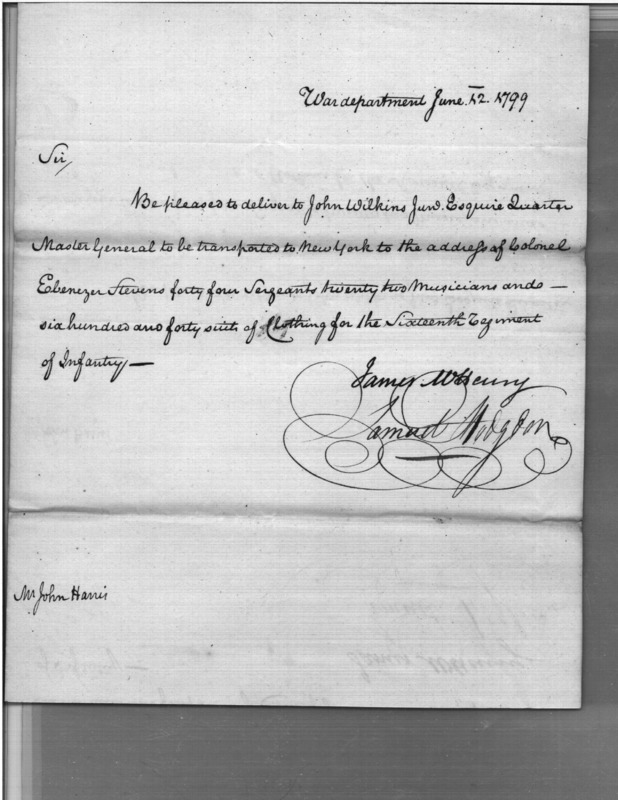 War department June 12. 1799
Sir/
Be pleased to deliver to John Wilkins Junr. Esquire Quarter
Master General to be transported to New York to the address of Colonel
Ebenezer Stevens forty four Sergeants twenty two Musicians and —
six hundred and forty suits of Clothing for the Sixteenth Regiment
of Infantry —
James McHenry
Samuel Hodgdon
Mr John Harris